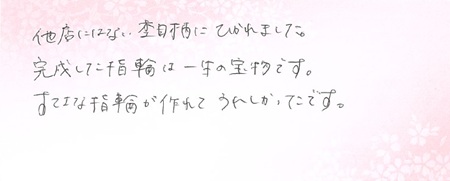 他店にはない杢目柄にひかれました。
完成した指輪は一生の宝物です。
すてきな指輪が作れてうれしかったです。